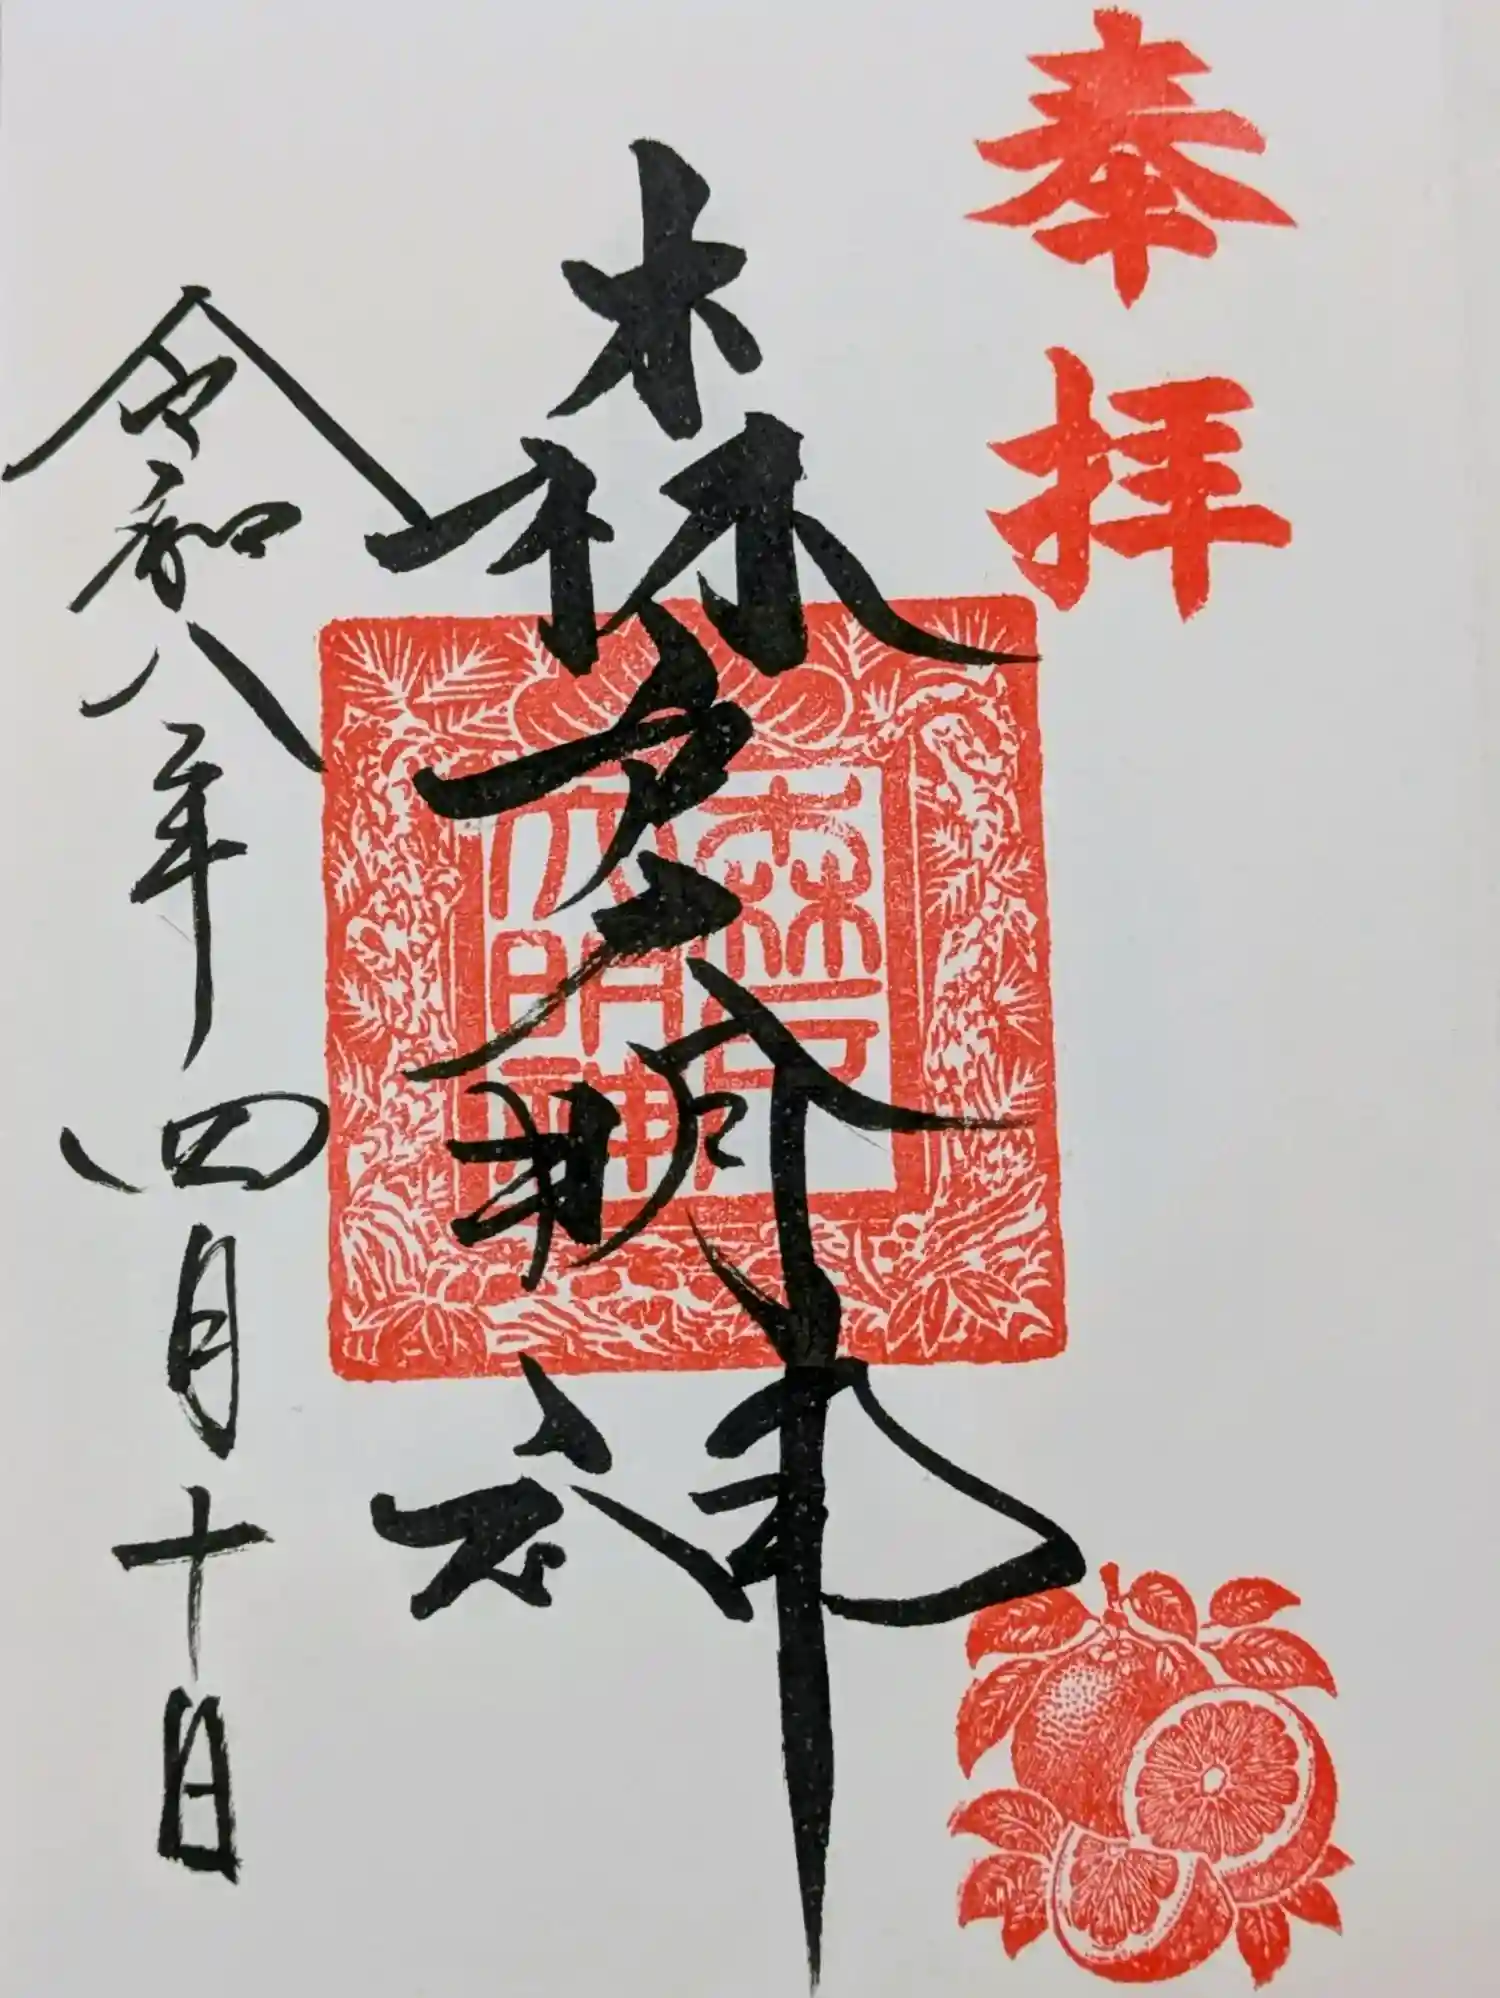 奉拝
森戸大明神
森戸
大明神
令和八年四月十日